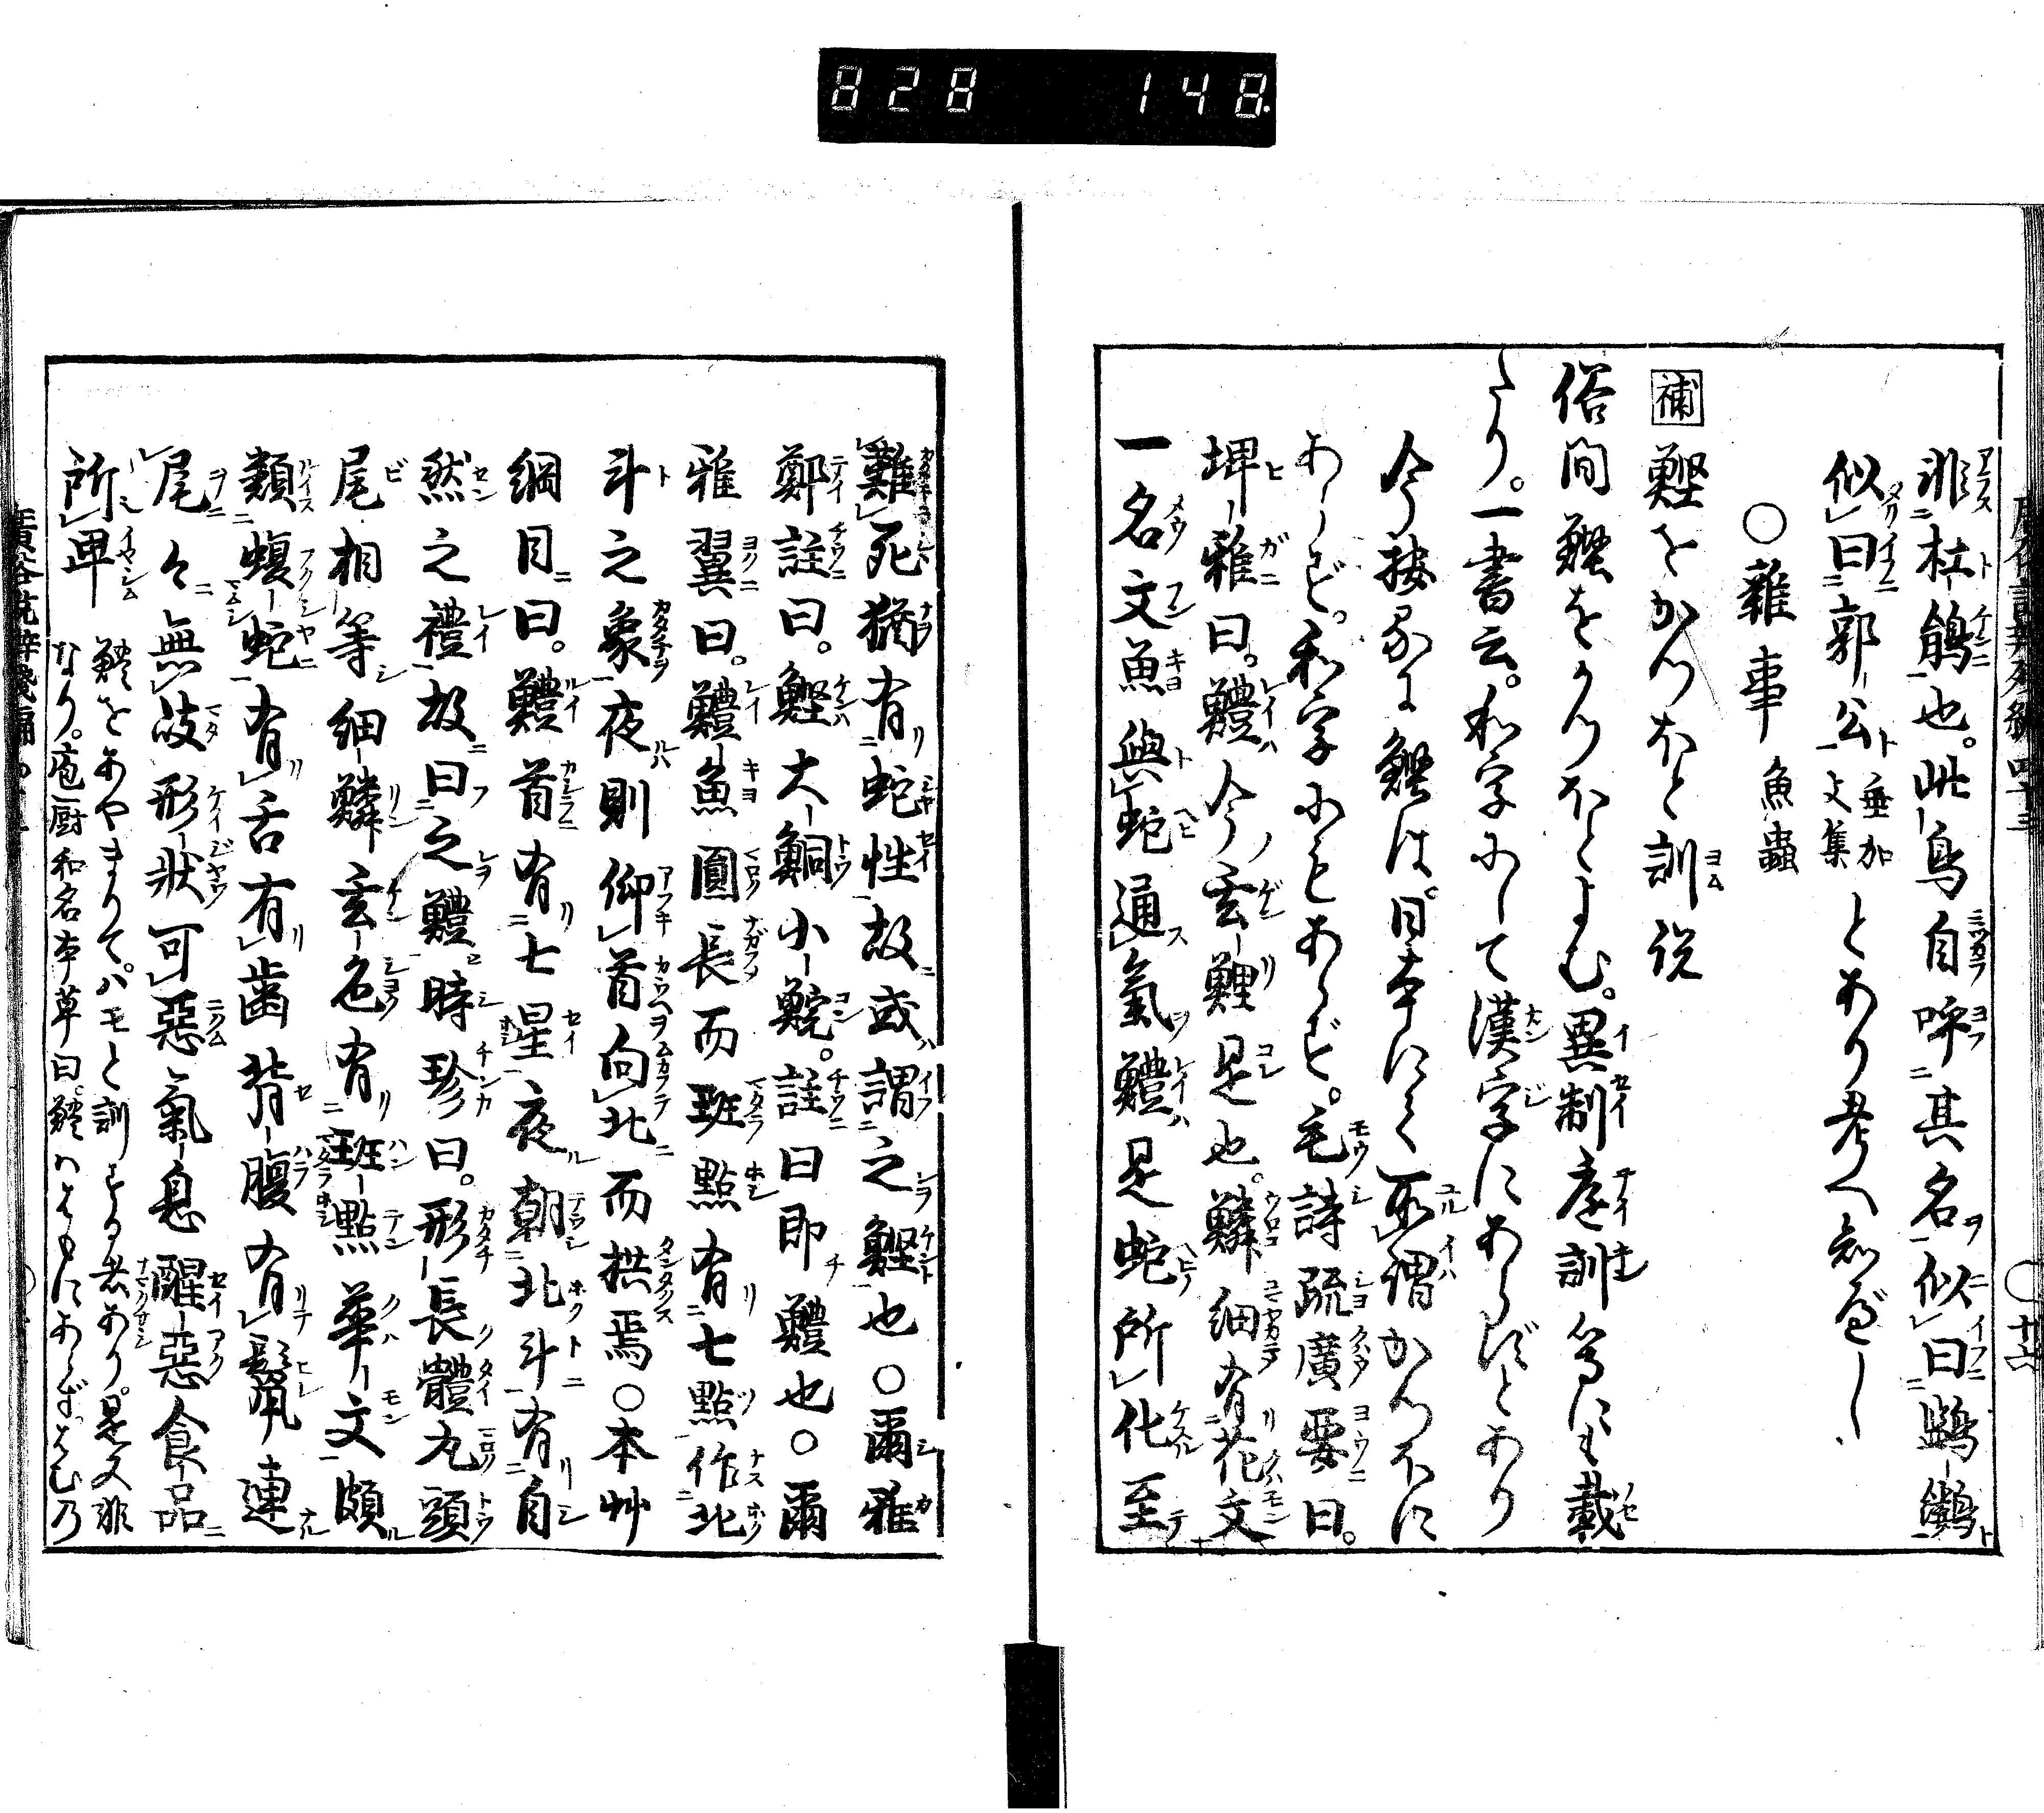 828 148
非杜鵑也。此鳥自呼其名似曰鷓鷀
似曰郭公 垂加文集 とあり考へ知べし
○雜事 魚蟲
補 鰹をかつほと訓説
俗間鰹をかつほとよむ。異制庭訓等にも載
たり。一書云。和字にして漢字にあらずとあり
今按るに鰹は日本にて所謂かつほに
あらず。和字にもあらず。毛詩疏廣要曰。
埤雅曰。鱧今玄鯉是也。鱗細有花文
一名文魚與蛇通氣鱧是蛇所化至
難死猶有蛇性故或謂之鰹也○爾雅
鄭註曰。鰹大鮦小鯇。註曰即鱧也○爾
雅翼曰。鱧魚圓長而斑點有七點作北
斗之象夜則仰首向北而拱焉○本艸
綱目曰。鱧首有七星夜朝北斗有自
然之禮故曰之鱧時珍曰。形長體丸頭
尾相等細鱗玄色有斑點華文頗
類蝮蛇有舌有齒背腹有鬣連
尾々無歧形狀可惡氣息醒惡食品
所卑 鱧をあやまりて。ハモと訓ずる者あり。是又非
なり。庖厨和名本草曰。鱧ははもにあらずはむ乃